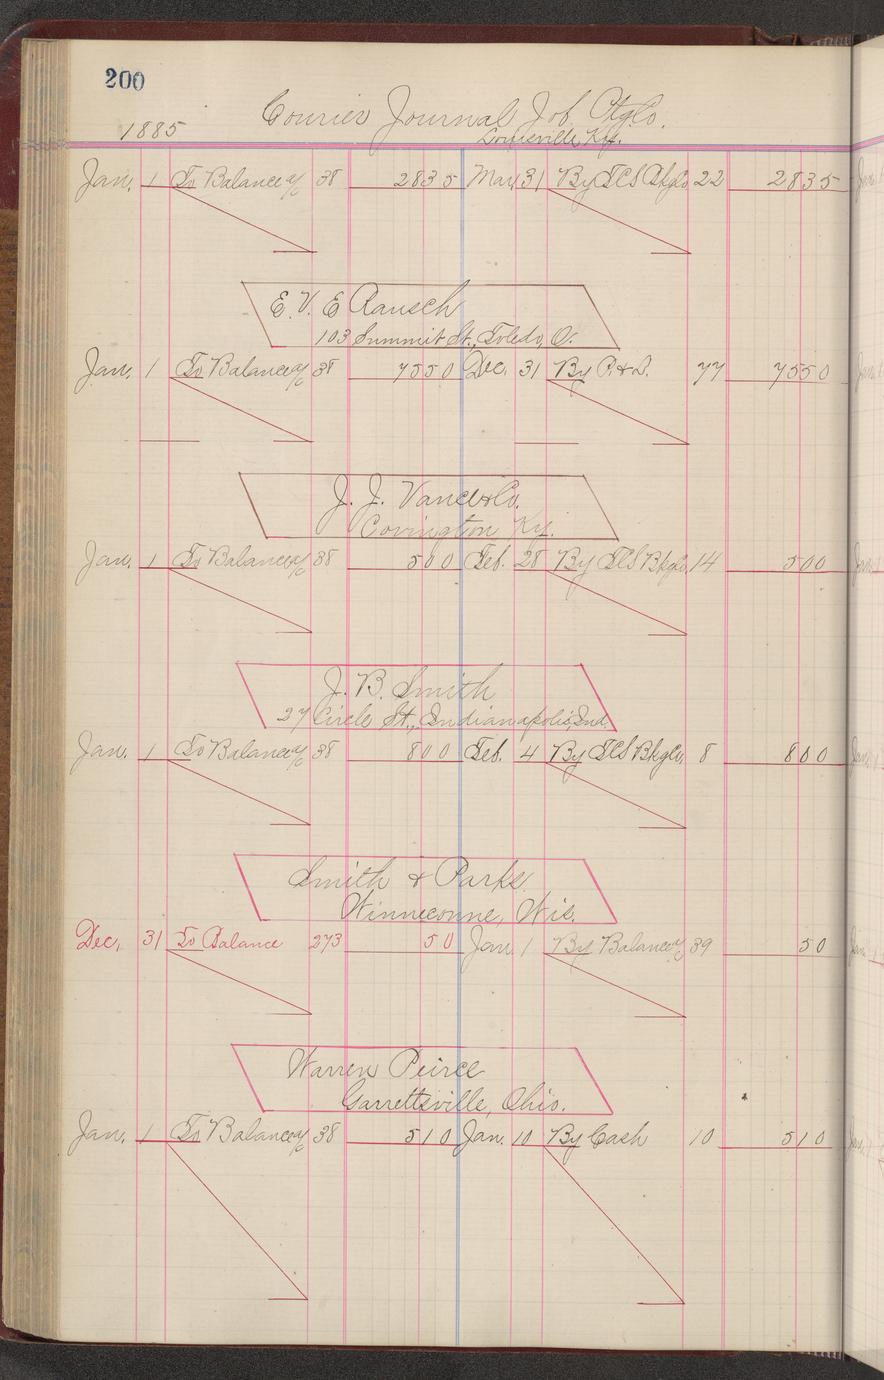 200
Courier Journal Job Ptg Co.
1885 Louisville Ky.
Jan. 1 To Balance a/c 38 2835 May 31 By TCS Bkg Co 22 2835
E. V. E Rausch
103 Summit St., Toledo, O.
Jan. 1 To Balance a/c 38 7550 Dec. 31 By P. & L. 77 7550
J. J. Vance & Co.
Covington Ky.
Jan. 1 To Balance a/c 38 500 Feb. 28 By TCS Bkg Co 14 500
J. B. Smith
27 Circle St., Indianapolis, Ind.
Jan. 1 To Balance a/c 38 800 Feb. 4 By TCS Bkg Co. 8 800
Smith & Parks.
Winneconne, Wis.
Dec. 31 To Balance 273 50 Jan. 1 By Balance a/c 39 50
Warren Peirce
Garrettsville, Ohio.
Jan. 1 To Balance a/c 38 510 Jan. 10 By Cash 10 510